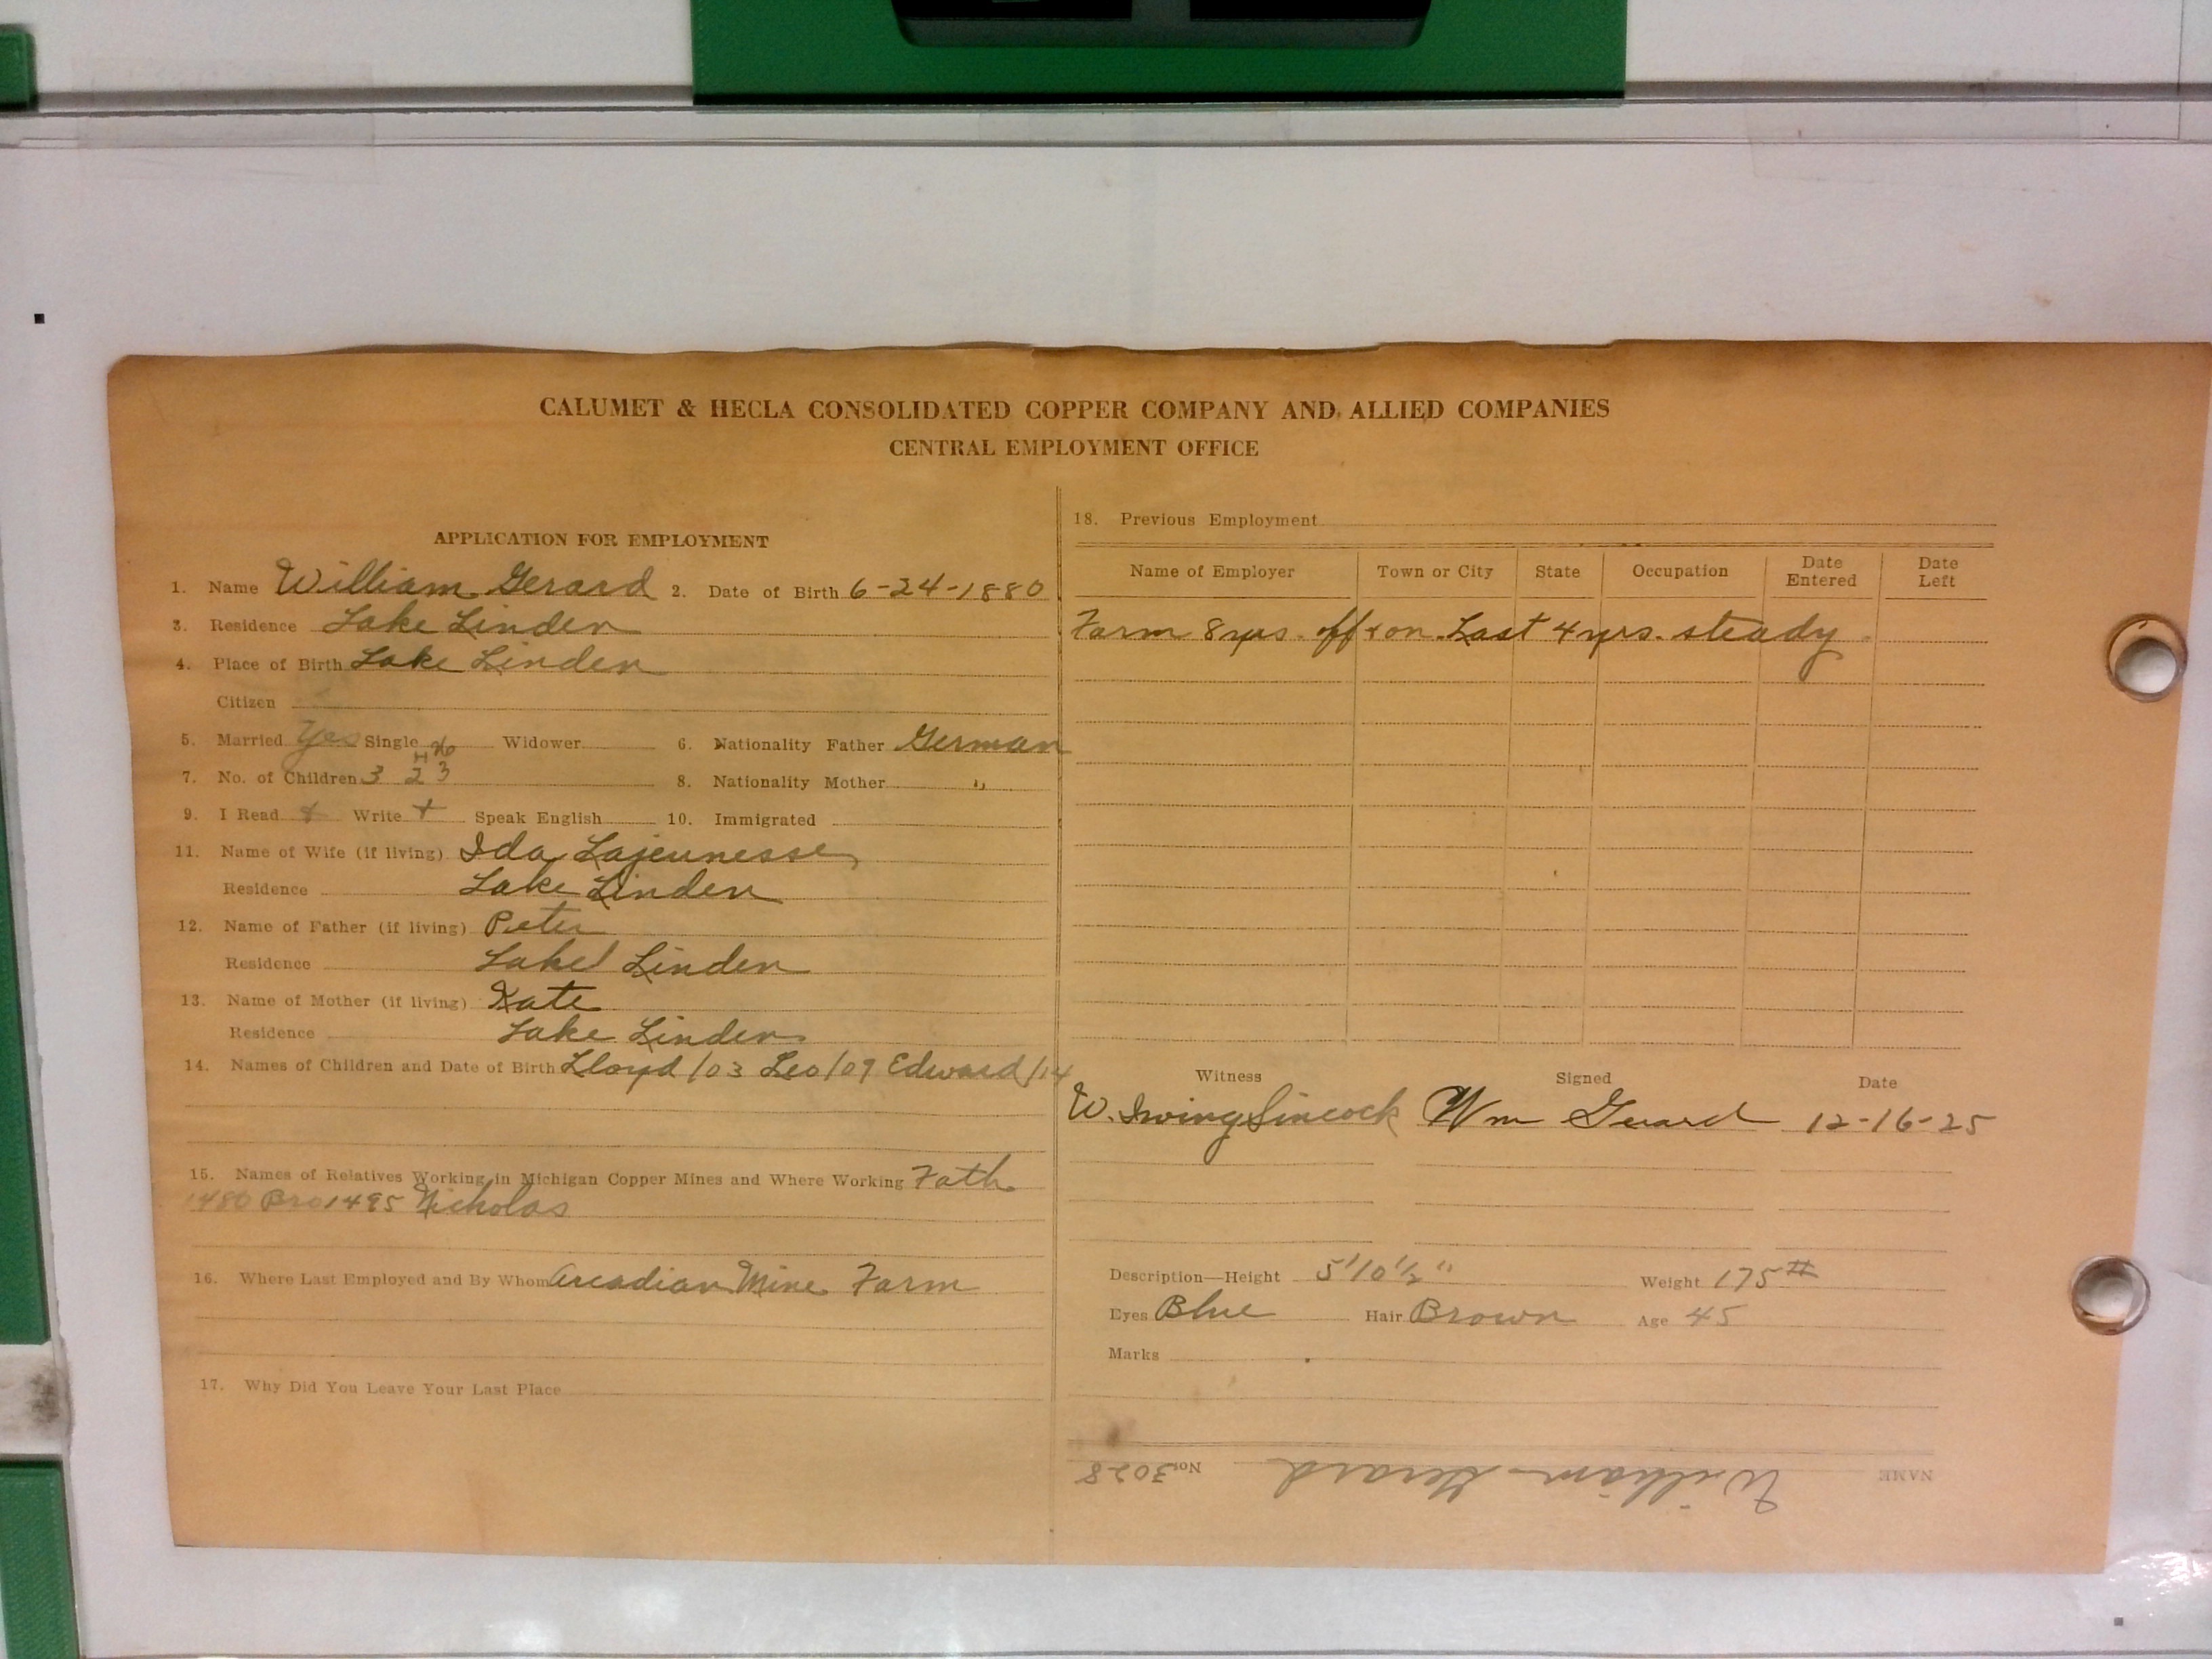 CALUMET & HECLA CONSOLIDATED COPPER COMPANY AND ALLIED COMPANIES
CENTRAL EMPLOYMENT OFFICE
APPLICATION FOR EMPLOYMENT
1. Name William Gerard 2. Date of Birth 6-24-1880
3. Residence Lake Linden
4. Place of Birth Lake Linden
Citizen
5. Married Yes Single Widower 6. Nationality Father German
7. No. of Children 3 8. Nationality Mother "
9. I Read + Write + Speak English 10. Immigrated
11. Name of Wife (if living) Ida Lajeunesse
Residence Lake Linden
12. Name of Father (if living) Peter
Residence Lake Linden
13. Name of Mother (if living) Kate
Residence Lake Linden
14. Names of Children and Date of Birth Lloyd /03 Leo /09 Edward /14
15. Names of Relatives Working in Michigan Copper Mines and Where Working Fath
1480 Bro 1495 Nicholas
16. Where Last Employed and By Whom Arcadian Mine Farm
17. Why Did You Leave Your Last Place
18. Previous Employment
Name of Employer Town or City State Occupation Date Entered Date Left
Farm 8 yrs. off + on. Last 4 yrs. steady.
Witness Signed Date
W. Irving Sincock Wm Gerard 12-16-25
Description—Height 5' 10 1/2" Weight 175 #
Eyes Blue Hair Brown Age 45
Marks
NAME William Gerard No. 3028